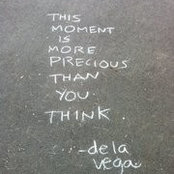 THIS
MOMENT
IS
MORE
PRECIOUS
THAN
YOU
THINK.
-dela
vega